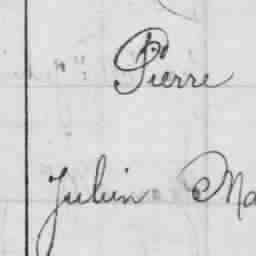 Pierre
Julien Ma